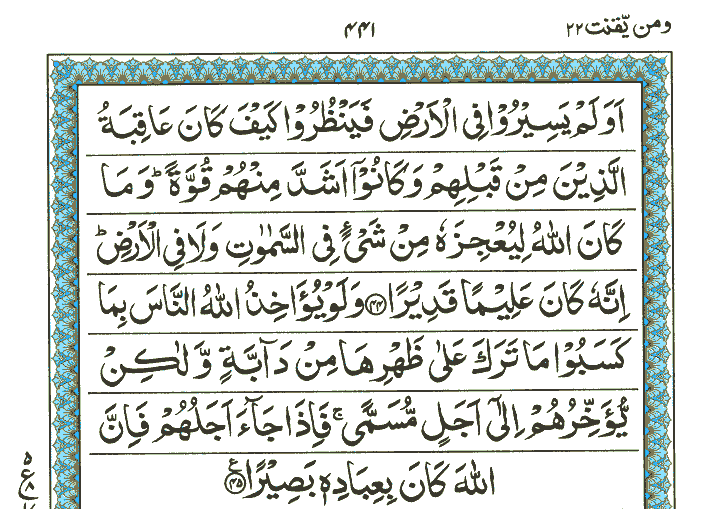 ومن يّقنت ٢٢
٤٤١
اَوَلَمْ يَسِيْرُوْا فِى الْاَرْضِ فَيَنْظُرُوْا كَيْفَ كَانَ عَاقِبَةُ
الَّذِيْنَ مِنْ قَبْلِهِمْ وَكَانُوْۤا اَشَدَّ مِنْهُمْ قُوَّةً ؕ وَمَا
كَانَ اللّٰهُ لِيُعْجِزَهٗ مِنْ شَىْءٍ فِى السَّمٰوٰتِ وَلَا فِى الْاَرْضِ ؕ
اِنَّهٗ كَانَ عَلِيْمًا قَدِيْرًا ﴿۴۴﴾ وَلَوْ يُؤَاخِذُ اللّٰهُ النَّاسَ بِمَا
كَسَبُوْا مَا تَرَكَ عَلٰى ظَهْرِهَا مِنْ دَآبَّةٍ وَّلٰكِنْ
يُّؤَخِّرُهُمْ اِلٰٓى اَجَلٍ مُّسَمًّى ۚ فَاِذَا جَآءَ اَجَلُهُمْ فَاِنَّ
اللّٰهَ كَانَ بِعِبَادِهٖ بَصِيْرًا ﴿۴۵﴾ ع